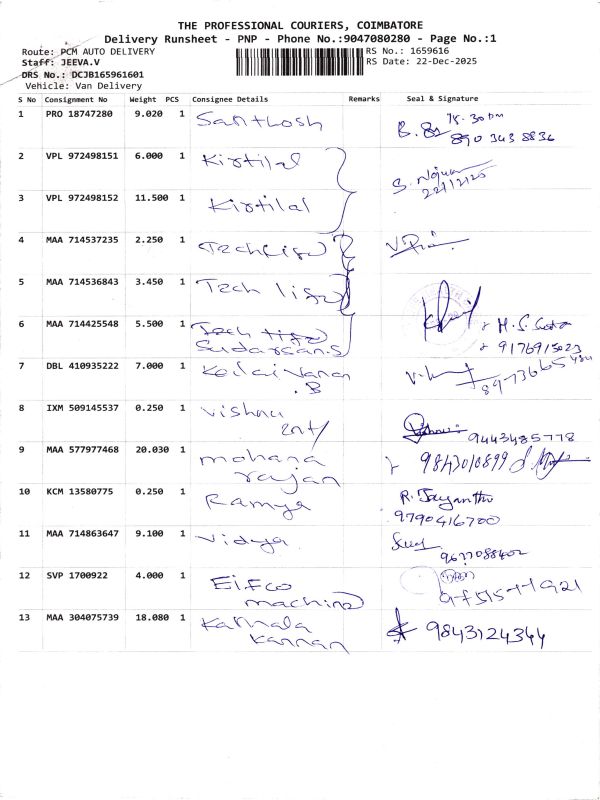 THE PROFESSIONAL COURIERS, COIMBATORE
Delivery Runsheet - PNP - Phone No.:9047080280 - Page No.:1
Route: PCM AUTO DELIVERY
RS No.: 1659616
Staff: JEEVA.V
RS Date: 22-Dec-2025
DRS No.: DCJB165961601
Vehicle: Van Delivery
S No Consignment No Weight PCS Consignee Details Remarks Seal & Signature
1 PRO 18747280 9.020 1 Santhosh
890 343 8836
2 VPL 972498151 6.000 1 Kirtilal
22/12/25
3 VPL 972498152 11.500 1 Kirtilal
4 MAA 714537235 2.250 1
5 MAA 714536843 3.450 1 Tech
6 MAA 714425548 5.500 1 Tech
Sudarsan.S
9176915023
7 DBL 410935222 7.000 1
.B
8 IXM 509145537 0.250 1 Vishnu
9443485778
9 MAA 577977468 20.030 1 mohana
rajan
9843010899
10 KCM 13580775 0.250 1 Ramya R. Jayanthi
9790416700
11 MAA 714863647 9.100 1 Vidya
12 SVP 1700922 4.000 1 Eifco
machine
13 MAA 304075739 18.080 1 Kamala
Kannan
9843124344